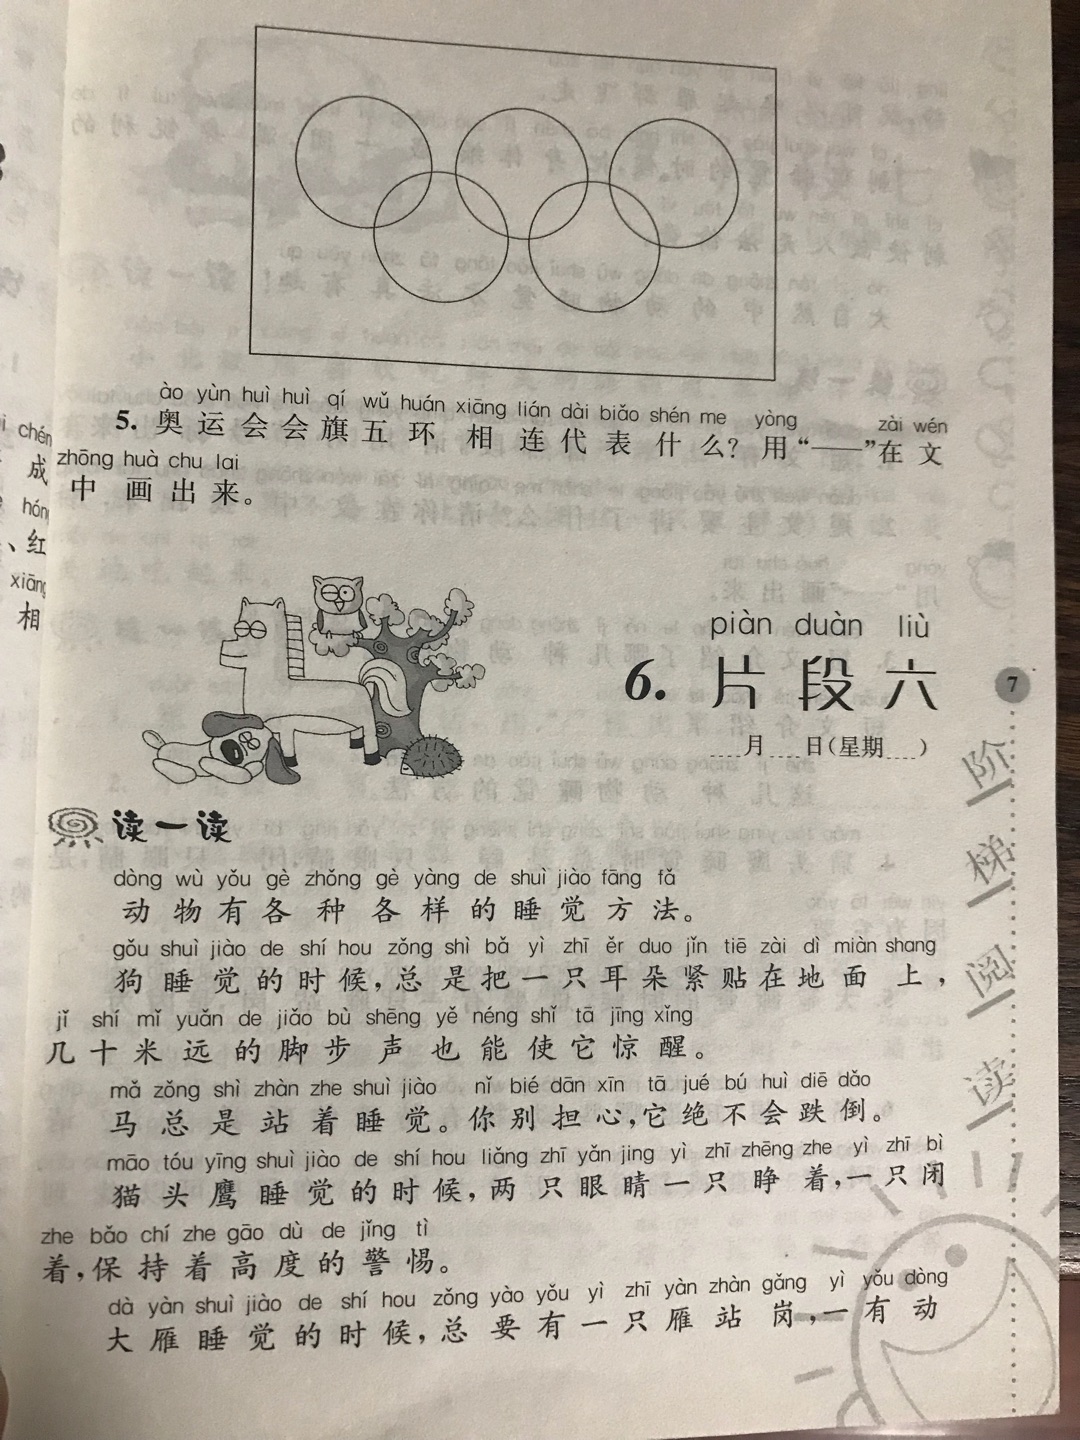 ào yùn huì huì qí wǔ huán xiāng lián dài biǎo shén me yòng zài wén
5. 奥运会会旗五环相连代表什么?用“——”在文
zhōng huà chu lai
中画出来。
piàn duàn liù
6. 片段六
月 日(星期 )
7
阶梯阅读
读一读
dòng wù yǒu gè zhǒng gè yàng de shuì jiào fāng fǎ
动物有各种各样的睡觉方法。
gǒu shuì jiào de shí hou zǒng shì bǎ yì zhī ěr duo jǐn tiē zài dì miàn shang
狗睡觉的时候,总是把一只耳朵紧贴在地面上,
jǐ shí mǐ yuǎn de jiǎo bù shēng yě néng shǐ tā jīng xǐng
几十米远的脚步声也能使它惊醒。
mǎ zǒng shì zhàn zhe shuì jiào nǐ bié dān xīn tā jué bú huì diē dǎo
马总是站着睡觉。你别担心,它绝不会跌倒。
māo tóu yīng shuì jiào de shí hou liǎng zhī yǎn jing yì zhī zhēng zhe yì zhī bì
猫头鹰睡觉的时候,两只眼睛一只睁着,一只闭
zhe bǎo chí zhe gāo dù de jǐng tì
着,保持着高度的警惕。
dà yàn shuì jiào de shí hou zǒng yào yǒu yì zhī yàn zhàn gǎng yì yǒu dòng
大雁睡觉的时候,总要有一只雁站岗,一有动
chén
成
hóng
、红
xiāng
相